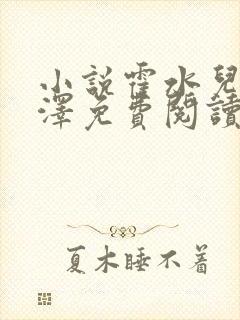 小說霍水兒
澤免費閱讀
夏木睡不着